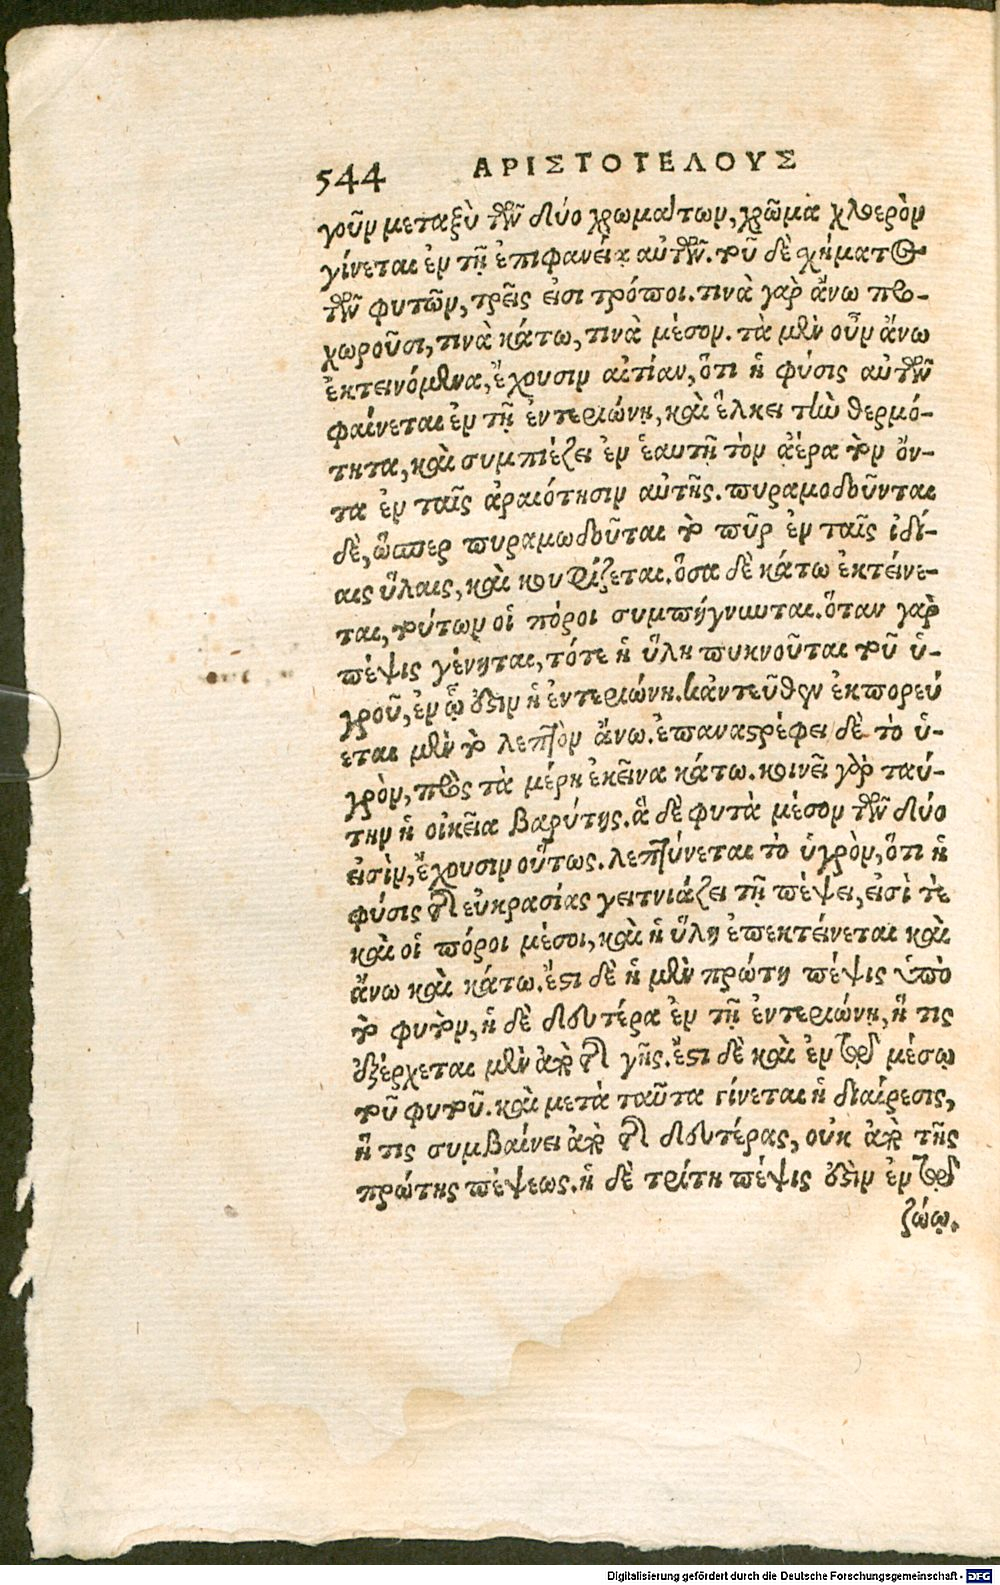 544 ΑΡΙΣΤΟΤΕΛΟΥΣ
γοῦν μεταξὺ τῶν δύο χρωμάτων, χρῶμα χλοερὸν
γίνεται ἐν τῇ ἐπιφανείᾳ αὐτῶν. τοῦ δὲ χήματος
τῶν φυτῶν, τρεῖς εἰσι τρόποι. τινὰ γὰρ ἄνω προ-
χωροῦσι, τινὰ κάτω, τινὰ μέσον. τὰ μὲν οὖν ἄνω
ἐκτεινόμενα, ἔχουσιν αἰτίαν, ὅτι ἡ φύσις αὐτῶν
φαίνεται ἐν τῇ ἐντεριώνῃ, καὶ ἕλκει τὴν θερμό-
τητα, καὶ συμπιέζει ἐν ἑαυτῇ τὸν ἀέρα τὸν ὄν-
τα ἐν ταῖς ἀραιότησιν αὐτῆς. πυραμοδοῦνται
δὲ, ὥσπερ πυραμωδοῦται τὸ πῦρ ἐν ταῖς ἰδί-
αις ὕλαις, καὶ κουφίζεται. ὅσα δὲ κάτω ἐκτείνε-
ται, τούτων οἱ πόροι συμπήγνυνται. ὅταν γὰρ
πέψις γένηται, τότε ἡ ὕλη πυκνοῦται τοῦ ὑ-
γροῦ, ἐν ᾧ ἐστιν ἡ ἐντεριώνη. κἀντεῦθεν ἐκπορεύ
εται μὲν τὸ λεπτὸν ἄνω. ἐπαναστρέφει δὲ τὸ ὑ-
γρὸν, πρὸς τὰ μέρη ἐκεῖνα κάτω. κινεῖ γὰρ ταύ-
την ἡ οἰκεῖα βαρύτης. ἃ δὲ φυτὰ μέσον τῶν δύο
εἰσὶν, ἔχουσιν οὕτως. λεπτύνεται τὸ ὑγρὸν, ὅτι ἡ
φύσις τῆς εὐκρασίας γειτνιάζει τῇ πέψει, εἰσὶ τὲ
καὶ οἱ πόροι μέσοι, καὶ ἡ ὕλη ἐπεκτείνεται καὶ
ἄνω καὶ κάτω. ἔστι δὲ ἡ μὲν πρώτη πέψις ὑπὸ
τὸ φυτὸν, ἡ δὲ δευτέρα ἐν τῇ ἐντεριώνῃ, ἥ τις
ἐξέρχεται μὲν ἀπὸ τῆς γῆς. ἔστι δὲ καὶ ἐν τῷ μέσῳ
τοῦ φυτοῦ. καὶ μετὰ ταῦτα γίνεται ἡ διαίρεσις,
ἥ τις συμβαίνει ἀπὸ τῆς δευτέρας, οὐκ ἀπὸ τῆς
πρώτης πέψεως. ἡ δὲ τρίτη πέψις ἐστὶν ἐν τῷ
ζώῳ.
Digitalisierung gefördert durch die Deutsche Forschungsgemeinschaft - DFG